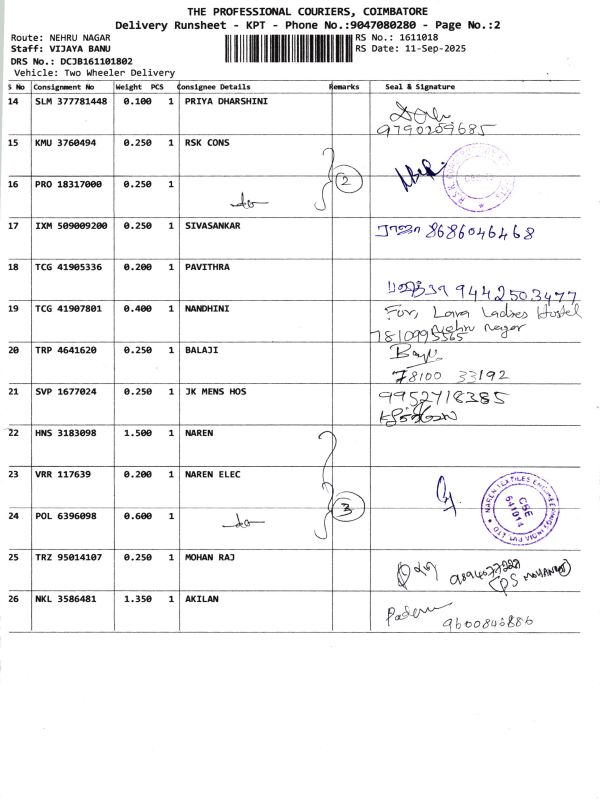 THE PROFESSIONAL COURIERS, COIMBATORE
Delivery Runsheet - KPT - Phone No.:9047080280 - Page No.:2
Route: NEHRU NAGAR
Staff: VIJAYA BANU
DRS No.: DCJB161101802
Vehicle: Two Wheeler Delivery
RS No.: 1611018
RS Date: 11-Sep-2025
S No Consignment No Weight PCS Consignee Details Remarks Seal & Signature
14 SLM 377781448 0.100 1 PRIYA DHARSHINI
9790209685
15 KMU 3760494 0.250 1 RSK CONS
2
16 PRO 18317000 0.250 1 do
17 IXM 509009200 0.250 1 SIVASANKAR 8686046468
18 TCG 41905336 0.200 1 PAVITHRA
9442503477
19 TCG 41907801 0.400 1 NANDHINI For, Lara Ladies Hostel
Nehru Nagar
7810995565
20 TRP 4641620 0.250 1 BALAJI
78100 33192
21 SVP 1677024 0.250 1 JK MENS HOS 9952718385
22 HNS 3183098 1.500 1 NAREN
23 VRR 117639 0.200 1 NAREN ELEC
3
NAREN TEXTILES ENGINEERING INDIA PVT LTD
CBE
641014
24 POL 6396098 0.600 1 do
25 TRZ 95014107 0.250 1 MOHAN RAJ
26 NKL 3586481 1.350 1 AKILAN
9600846886